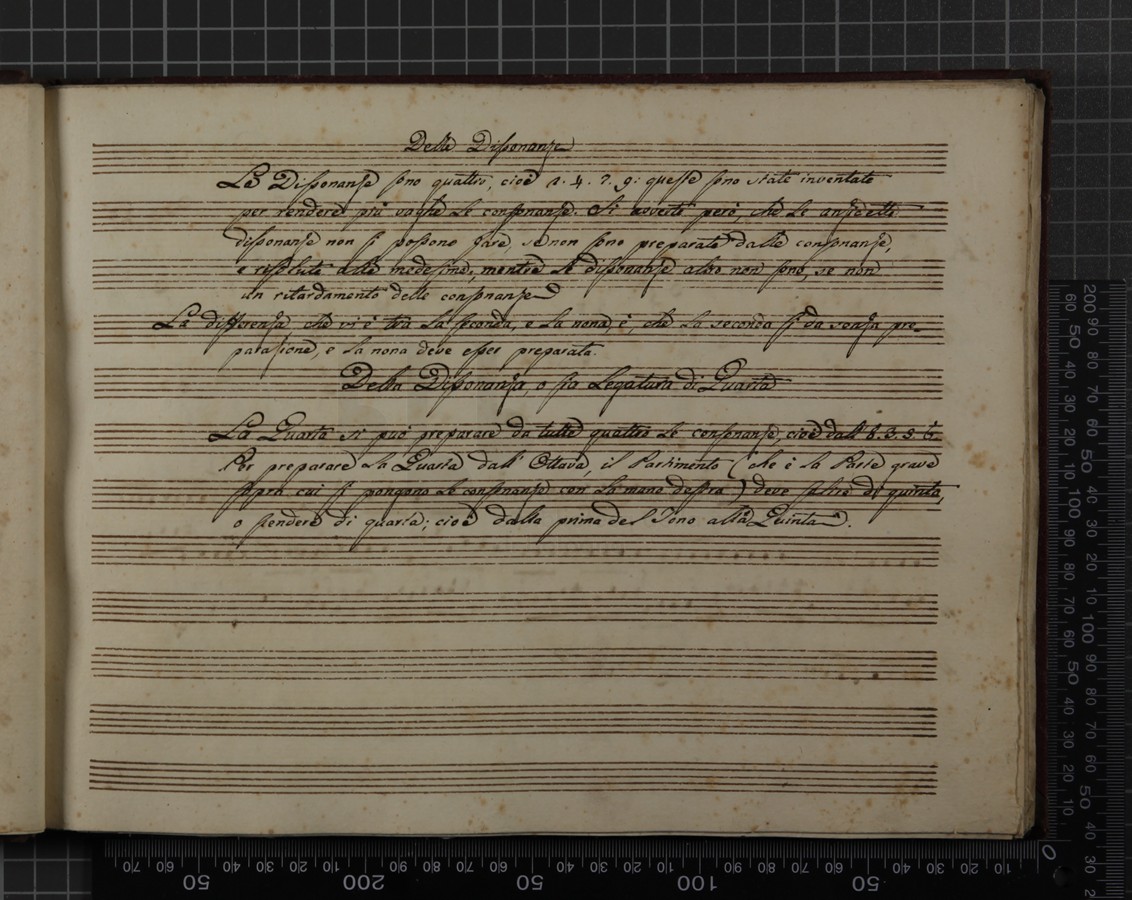 Delle Dissonanze
Le Dissonanze sono quattro, cioè 2. 4. 7. 9: queste sono state inventate
per rendere più vaghe le consonanze. Si averte però, che le anzidette
dissonanze non si possono fare se non sono preparate dalle consonanze,
e risolute alle medesime, mentre le dissonanze altro non sono, se non
un ritardamento delle consonanze
La differenza che vi è tra la seconda, e la nona, è, che la seconda si da senza pre-
parazione, e la nona deve esser preparata.
Della Dissonanza, o sia Legatura di Quarta
La Quarta si può preparare da tutte quattro le consonanze, cioè dall' 8. 3. 5. 6.
Per preparare la Quarta dall' Ottava, il Partimento (che è la Parte grave
sopra cui si pongono le consonanze con la mano destra) deve salire di quinta,
o scendere di quarta; cioè dalla prima del Tono alla Quinta.
200 90 80 70 60 50 40 30 20 10 100 90 80 70 60 50 40 30 20
60 50 40 30 20 10 100 90 80 70 60 50 40 30 20 10
70 60 50 40 30 20 10 200 90 80 70 60 50 40 30 20 10 100 90 80 70 60 50 40 30 20 10 0
50 200 50 100 50